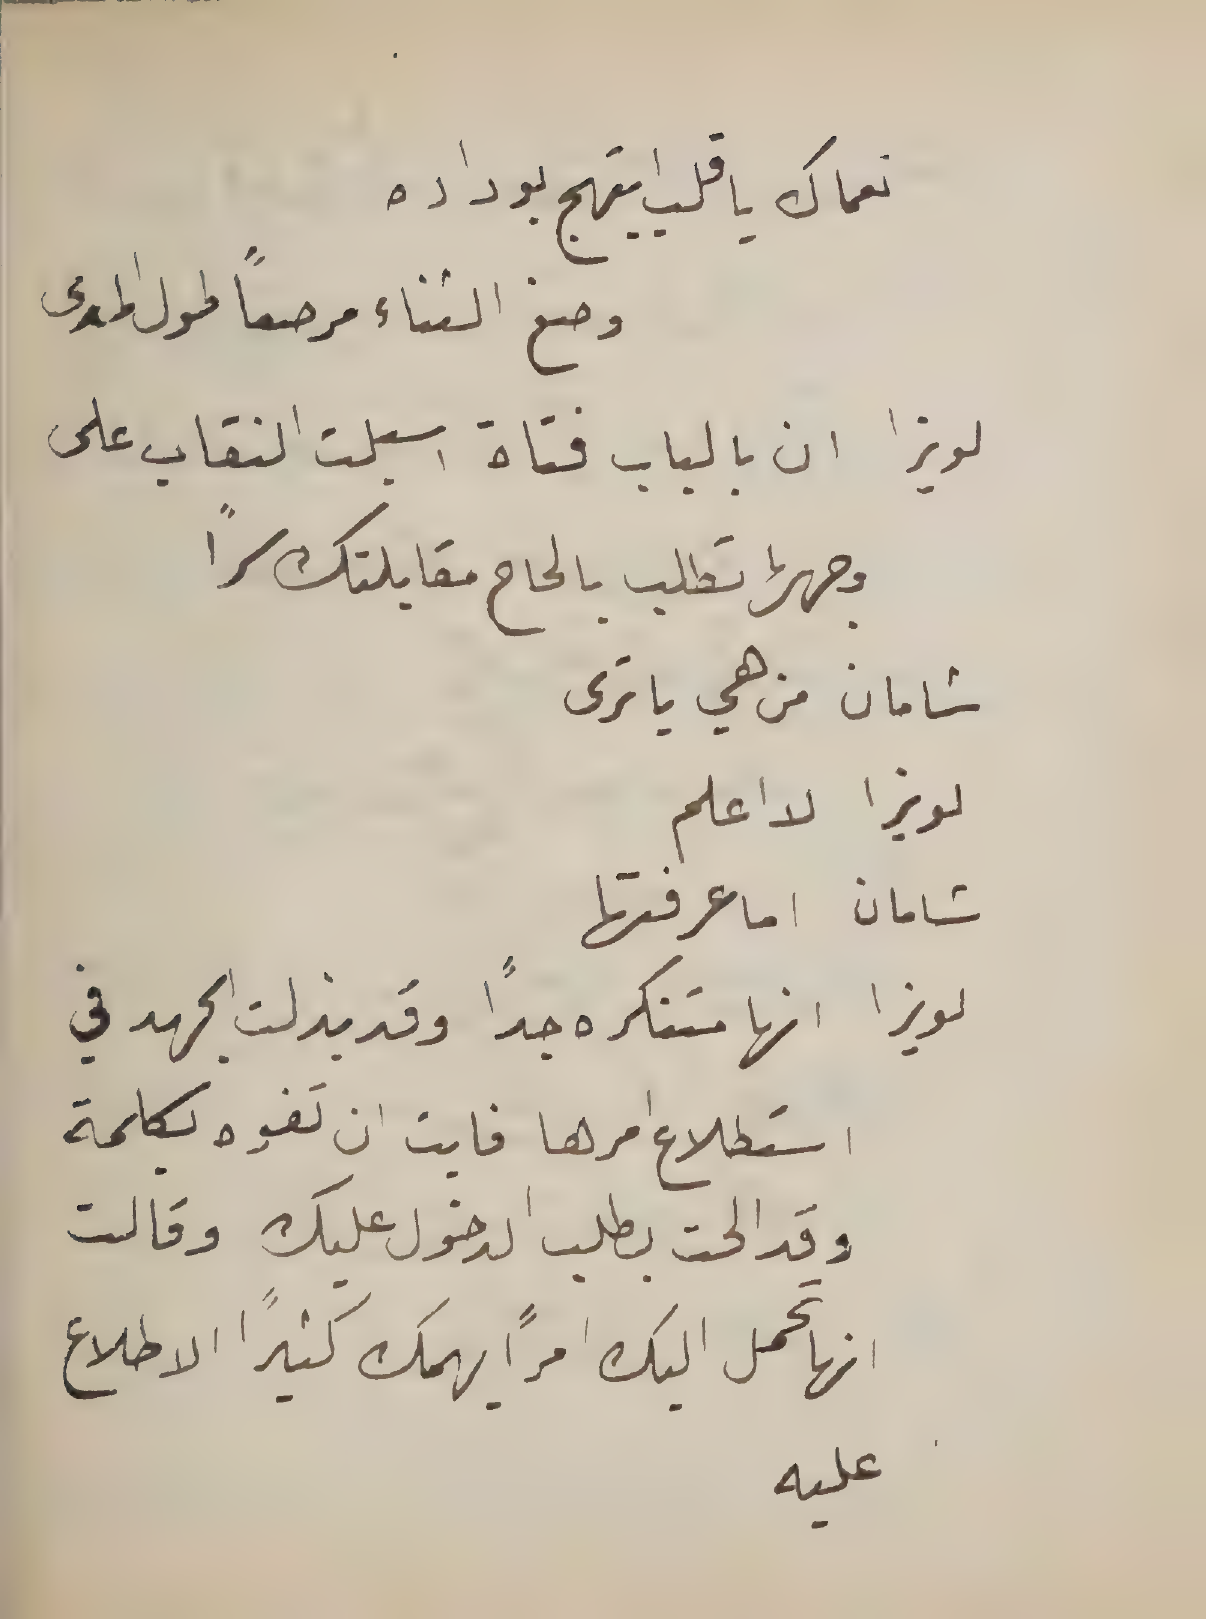 نعماك يا قلب ابتهج بوداده
وصغ الثناء مرصعاً طول المدى
لويزا ان بالباب فتاة اسبلت النقاب على
وجهها تطلب بالحاح مقابلتك سراً
شامان من هي يا ترى
لويزا لا اعلم
شامان اما عرفتها
لويزا انها متنكره جداً وقد بذلت الجهد في
استطلاع امرها فابت ان تفوه بكلمة
وقد الحت بطلب الدخول عليك وقالت
انها تحمل اليك امراً يهمك كثيراً الاطلاع
عليه